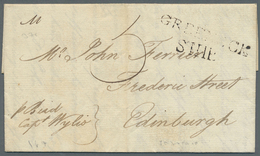 M
GREENOCK
SHIP
Mr John Ferrier
Frederic Street
Edinburgh
Capt Wylie